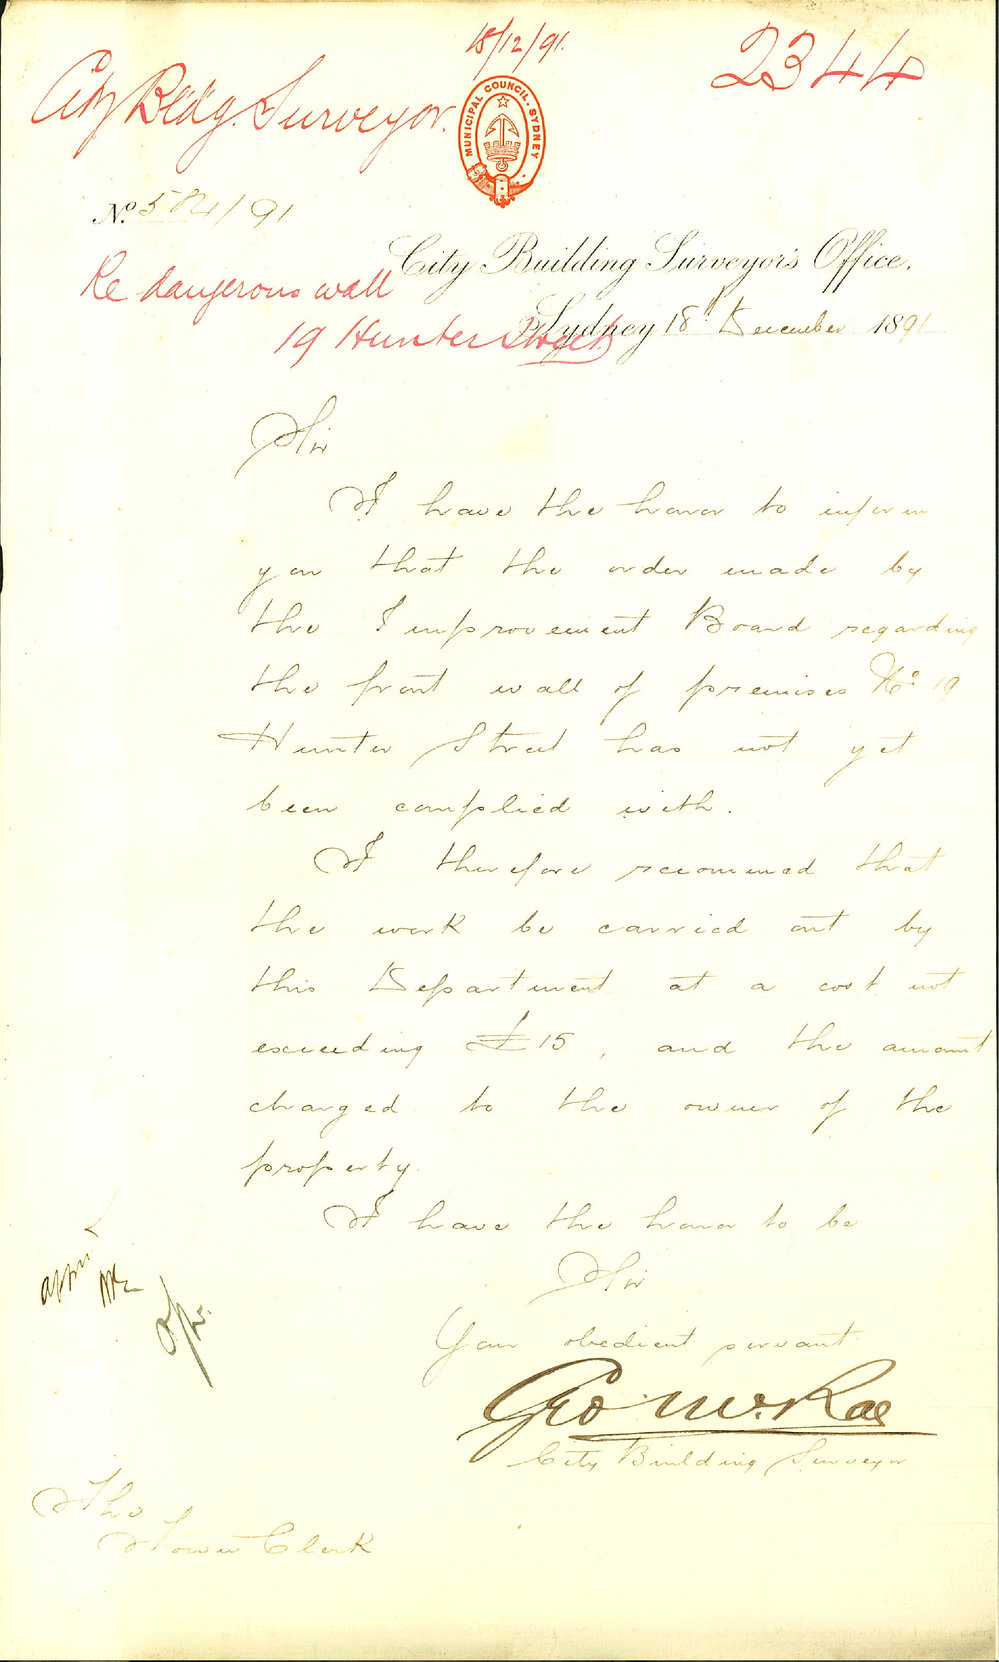 18/12/91.
2344
City Bldg. Surveyor.
MUNICIPAL COUNCIL. SYDNEY
No. /91
City Building Surveyor's Office.
Re dangerous wall
Sydney 18th December 1891
19 Hunter Street
Sir
I have the honor to inform
you that the order made by
the Improvement Board regarding
the front wall of premises No 19
Hunter Street has not yet
been complied with.
I therefore recommend that
the work be carried out by
this Department at a cost not
exceeding £15, and the amount
charged to the owner of the
property.
I have the honor to be
Sir
Your obedient servant
Geo McRae
City Building Surveyor
The
Town Clerk